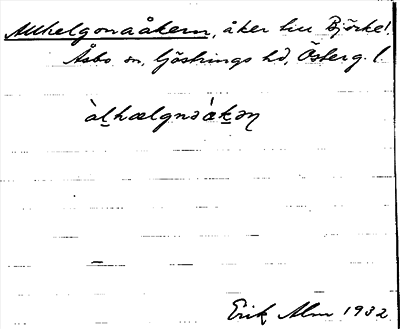 Allhelgonaåkern, åker till Björke!
Åsbo sn, Göstrings hd, Österg. l.
àl̠hælgnəàk̠əɳ
Erik Alm 1932